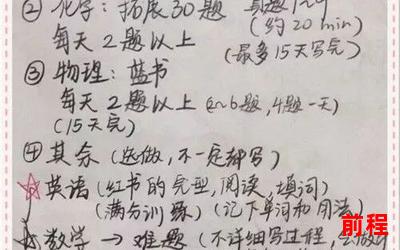 ② 化学：拓展30题 真题1~9
(约20min)
每天2题以上 (最多15天写完)
③ 物理：蓝书
每天2题以上 (2~6题，4题一天)
(15天完)
④ 其余 (选做，不一定都写)
英语 (红书的完型，阅读，填词)
(满分训练) (记下单词和用法)
数学 → 难题 (不详细写过程，
前程